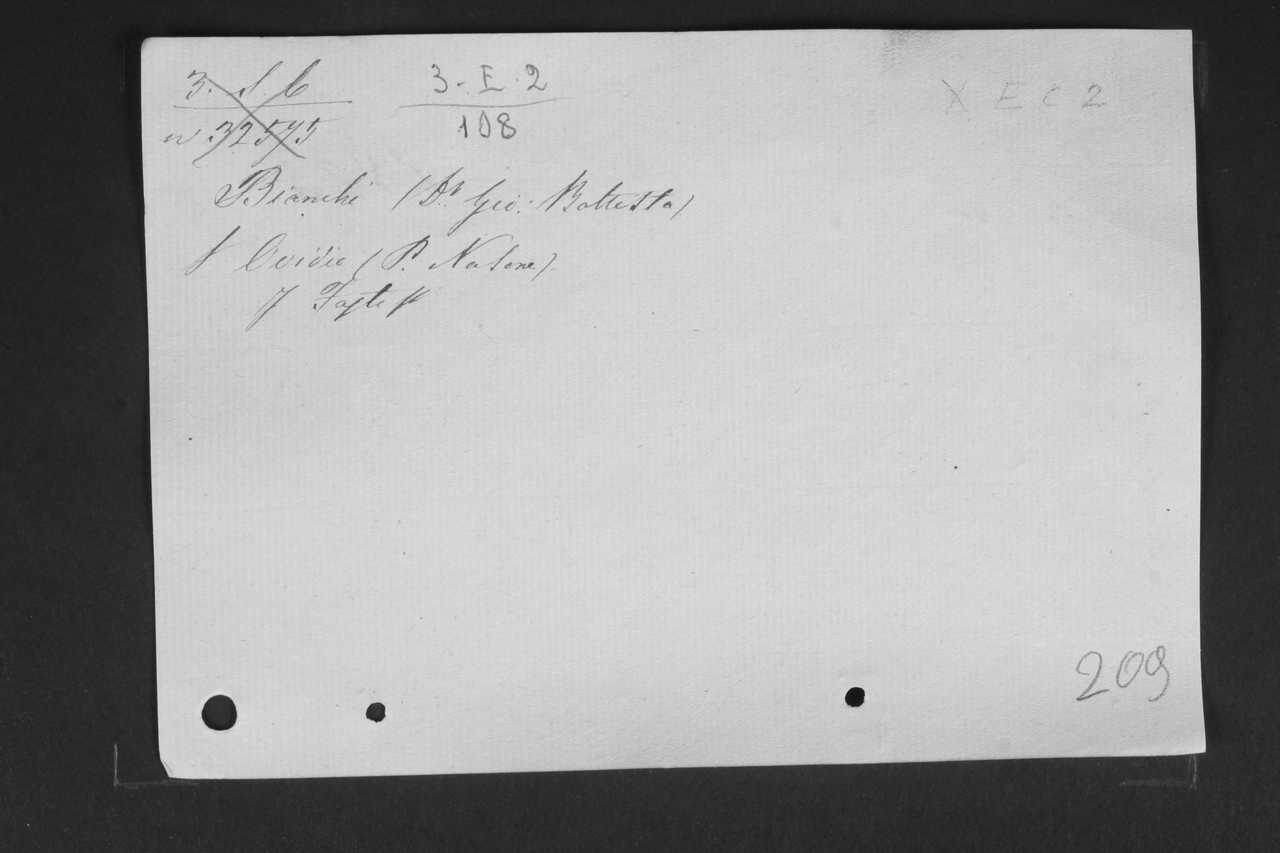 3. S. C 3-E. 2 X E C 2
nº 32575 108
Bianchi (Dr Gio: Battista)
f Ovidio (P. Nasone).
I Fasti
209